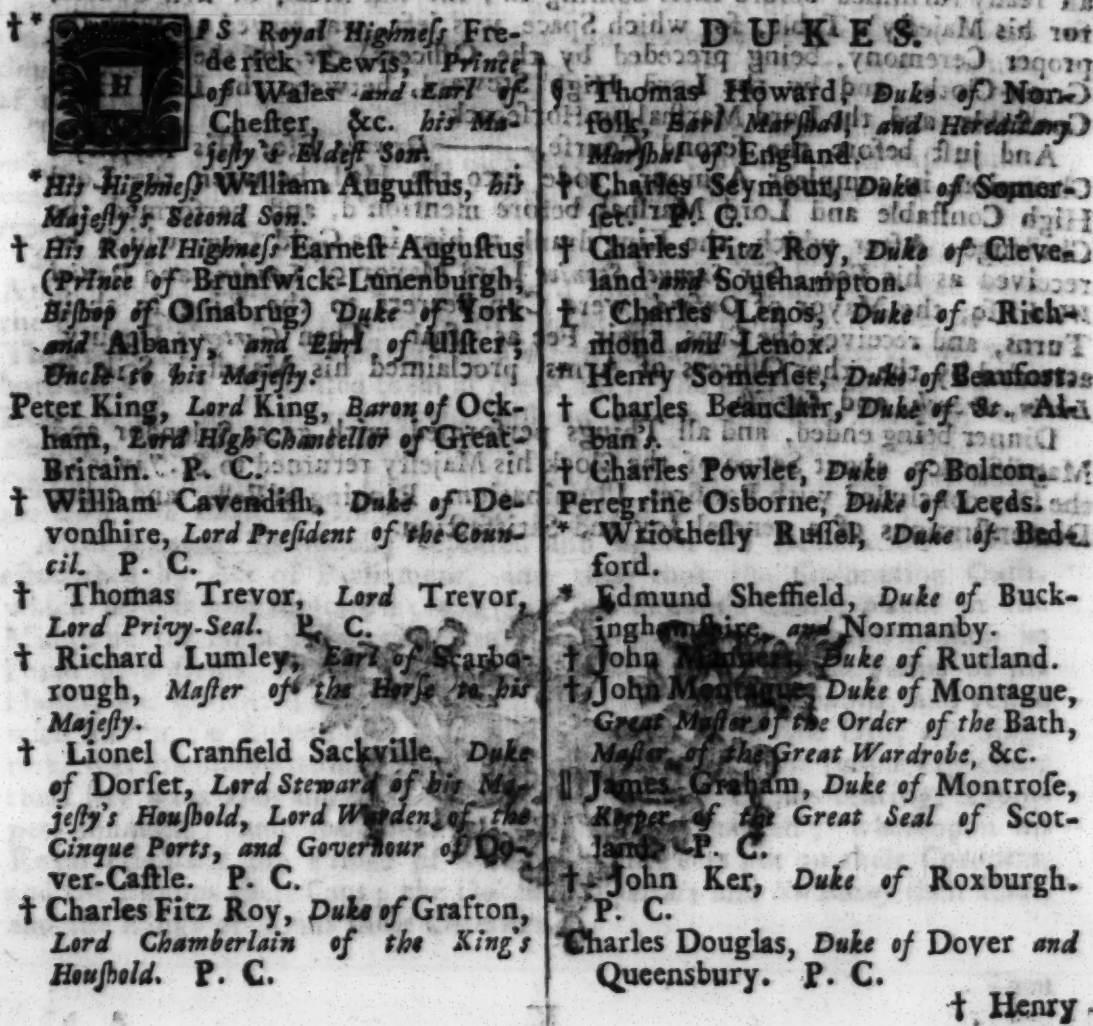 †* HIS Royal Highneſs Fre-
derick Lewis, Prince
of Wales and Earl of
Cheſter, &c. his Ma-
jeſty's Eldeſt Son.
* His Highneſs William Auguſtus, his
Majeſty's Second Son.
† His Royal Highneſs Earneſt Auguſtus
(Prince of Brunſwick-Lunenburgh,
Biſhop of Oſnabrug) Duke of York
and Albany, and Earl of Ulſter,
Uncle to his Majeſty.
Peter King, Lord King, Baron of Ock-
ham, Lord High Chancellor of Great-
Britain. P. C.
† William Cavendiſh, Duke of De-
vonſhire, Lord Preſident of the Coun-
cil. P. C.
† Thomas Trevor, Lord Trevor,
Lord Privy-Seal. P. C.
† Richard Lumley, Earl of Scarbo-
rough, Maſter of the Horſe to his
Majeſty.
† Lionel Cranfield Sackville, Duke
of Dorſet, Lord Steward of his Ma-
jeſty's Houſhold, Lord Warden of the
Cinque Ports, and Governour of Do-
ver-Caſtle. P. C.
† Charles Fitz Roy, Duke of Grafton,
Lord Chamberlain of the King's
Houſhold. P. C.
DUKES.
§ Thomas Howard, Duke of Nor-
folk, Earl Marſhal, and Hereditary
Marſhal of England.
† Charles Seymour, Duke of Somer-
ſet. P. C.
† Charles Fitz Roy, Duke of Cleve-
land and Southampton.
† Charles Lenos, Duke of Rich-
mond and Lenox.
Henry Somerſet, Duke of Beaufort.
† Charles Beauclair, Duke of St. Al-
ban's.
† Charles Powlet, Duke of Bolton.
Peregrine Osborne, Duke of Leeds.
* Wriotheſly Ruſſel, Duke of Bed-
ford.
* Edmund Sheffield, Duke of Buck-
inghamſhire, and Normanby.
† John Manners, Duke of Rutland.
† John Montague, Duke of Montague,
Great Maſter of the Order of the Bath,
Maſter of the Great Wardrobe, &c.
‖ James Graham, Duke of Montroſe,
Keeper of the Great Seal of Scot-
land. P. C.
† John Ker, Duke of Roxburgh.
P. C.
Charles Douglas, Duke of Dover and
Queensbury. P. C.
† Henry